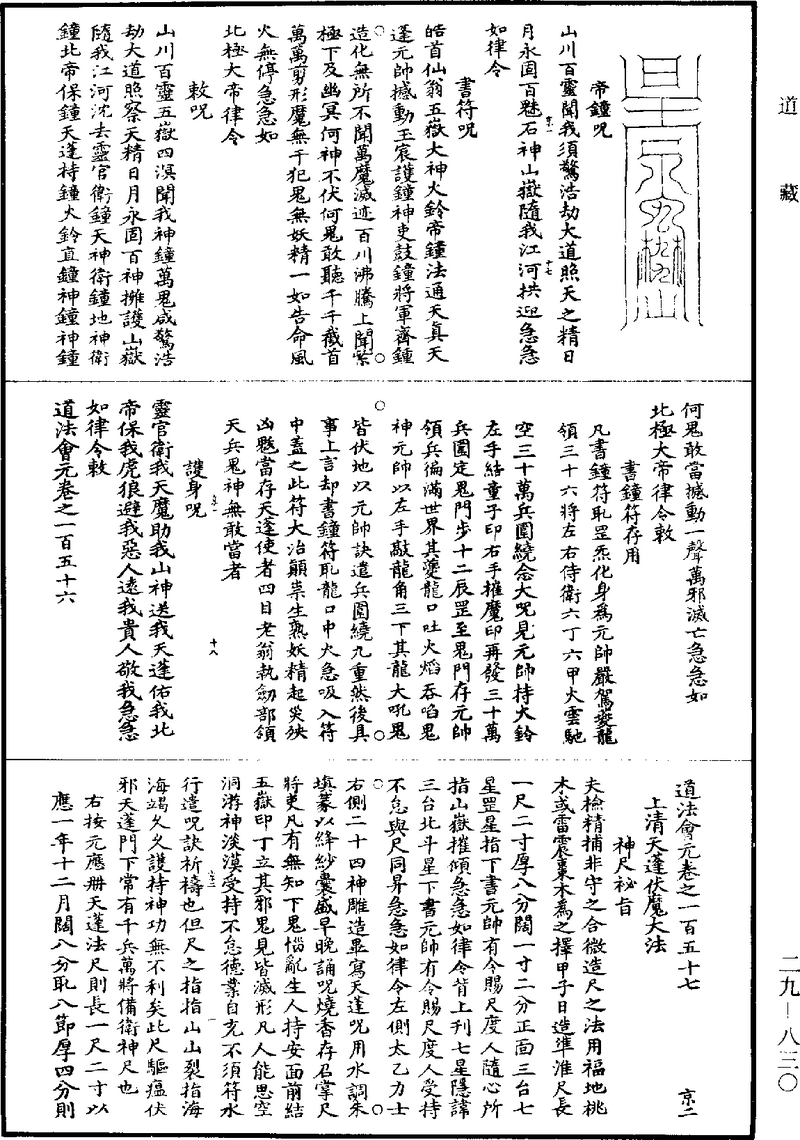 道藏
帝鐘呪
山川百靈聞我須驚浩劫大道照天之精日
月永固百魅石神山嶽隨我江河拱迎急急
如律令
書符呪
皓首仙翁五嶽大神火鈴帝鐘法通天真天
蓬元帥撼動玉宸護鐘神吏鼓鐘將軍齊鍾
造化無所不聞萬魔滅迹百川沸騰上聞紫
極下及幽冥何神不伏何鬼敢聽千千截首
萬萬剪形魔無干犯鬼無妖精一如告命風
火無停急急如
北極大帝律令
敕呪
山川百靈五嶽四溟聞我神鐘萬鬼咸驚浩
劫大道照察天精日月永固百神擁護山嶽
隨我江河沈去靈官衛鐘天神衛鐘地神衛
鐘北帝保鐘天蓬持鐘火鈴直鐘神鐘神鐘
何鬼敢當撼動一聲萬邪滅亡急急如
北極大帝律令敕
書鐘符存用
凡書鐘符取罡炁化身為元帥嚴駕夔龍
領三十六將左右侍衛六丁六甲火雲馳
空三十萬兵圍繞念大呪見元帥持大鈴
左手結童子印右手摧魔印再發三十萬
兵圍定鬼門步十二辰罡至鬼門存元帥
領兵徧滿世界其夔龍口吐火焰吞啗鬼
神元帥以左手敲龍角三下其龍大吼鬼
皆伏地以元帥訣遣兵圍繞九重然後具
事上言却書鐘符取龍口中火急吸入符
中蓋之此符大治顛祟生熟妖精起災殃
凶懸當存天蓬使者四目老翁執劒部領
天兵鬼神無敢當者
十八
護身呪
靈官衛我天魔助我山神送我天蓬佑我北
帝保我虎狼避我惡人遠我貴人敬我急急
如律令敕
道法會元卷之一百五十六
道法會元卷之一百五十七
京二
上清天蓬伏魔大法
神尺祕旨
夫檢精捕非守之合微造尺之法用福地桃
木或雷震棗木為之擇甲子日造準淮尺長
一尺二寸厚八分闊一寸二分正面三台七
星罡星指下書元帥有令賜尺度人隨心所
指山嶽摧傾急急如律令背上刊七星隱諱
三台北斗星下書元帥有令賜尺度人受持
不怠與尺同昇急急如律令左側太乙力士
右側二十四神雕造畢寫天蓬呪用水調朱
填篆以絳紗囊盛早晚誦呪燒香存召掌尺
將吏凡有無知下鬼惱亂生人持安面前結
五嶽印丁立其邪鬼見皆滅形凡人能思空
洞游神淡漠受持不怠德業自充不須符水
行遣呪訣祈禱也但尺之指指山山裂指海
海竭久久護持神功無不利矣此尺驅瘟伏
邪天蓬門下常有千兵萬將備衛神尺也
右按元應冊天蓬法尺則長一尺二寸以
應一年十二月闊八分取八節厚四分則
二九—八三〇